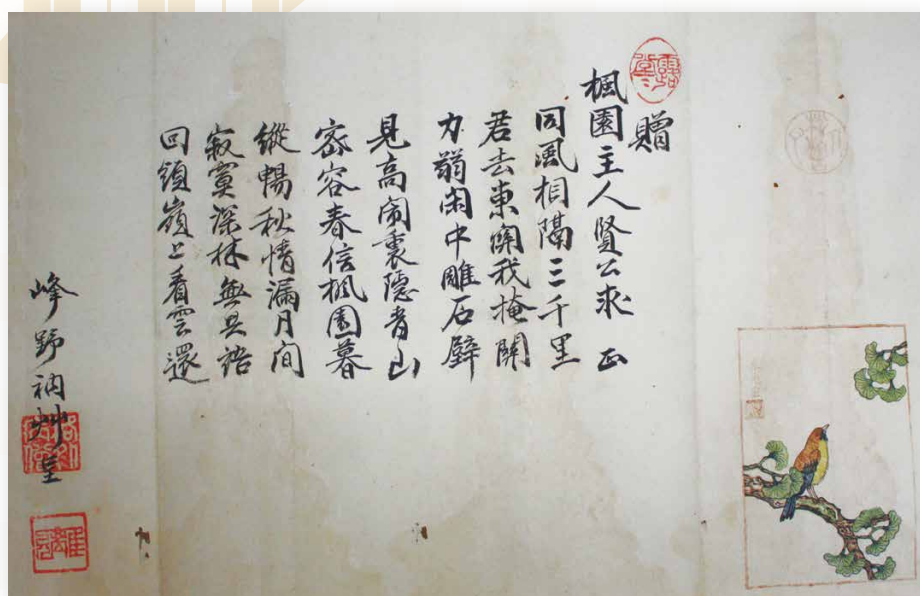 贈
楓園主人賢公求 正
同風相隔三千里
君去東関我掩関
力弱閑中雕石壁
見高閙裏隱青山
密容春信楓園暮
縱暢秋情漏月間
寂寞深林無語
回頭嶺上看雲還
峰野衲艸呈